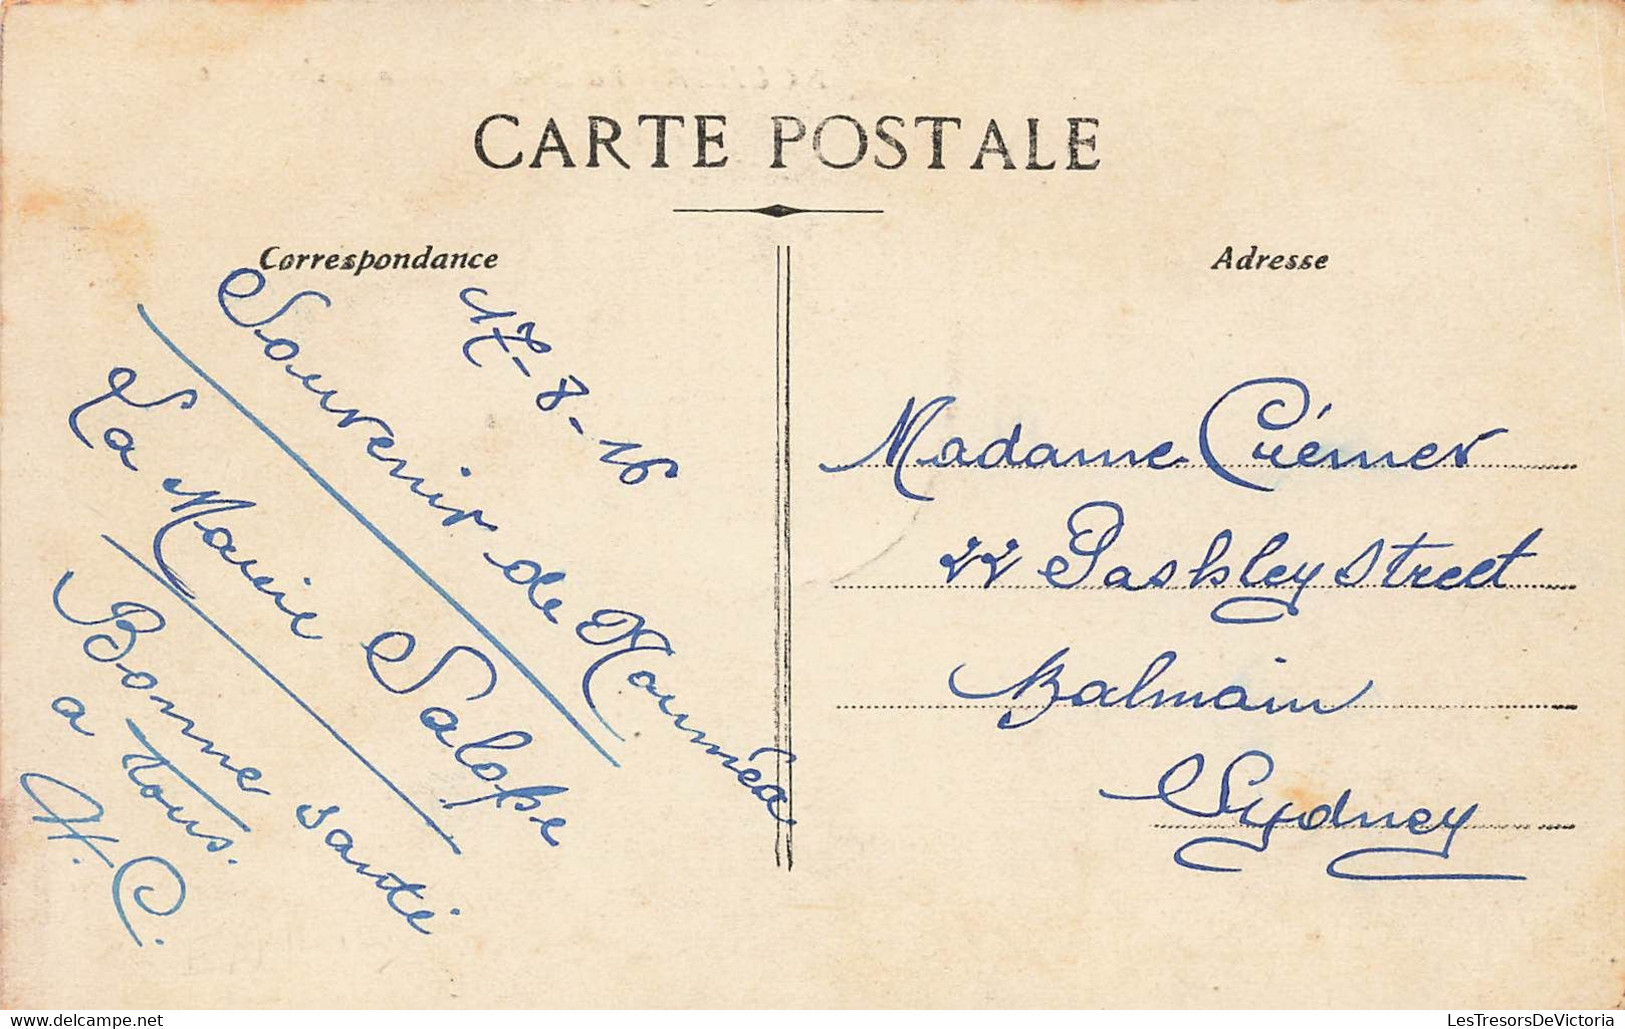 CARTE POSTALE
Correspondance
Adresse
17-8-16
Souvenir de Nouméa.
La Marie Salope
Bonne santé
a tous.
H. C.
Madame Crémer
22 Pashley Street
Balmain
Sydney
LesTresorsDeVictoria
delcampe.net